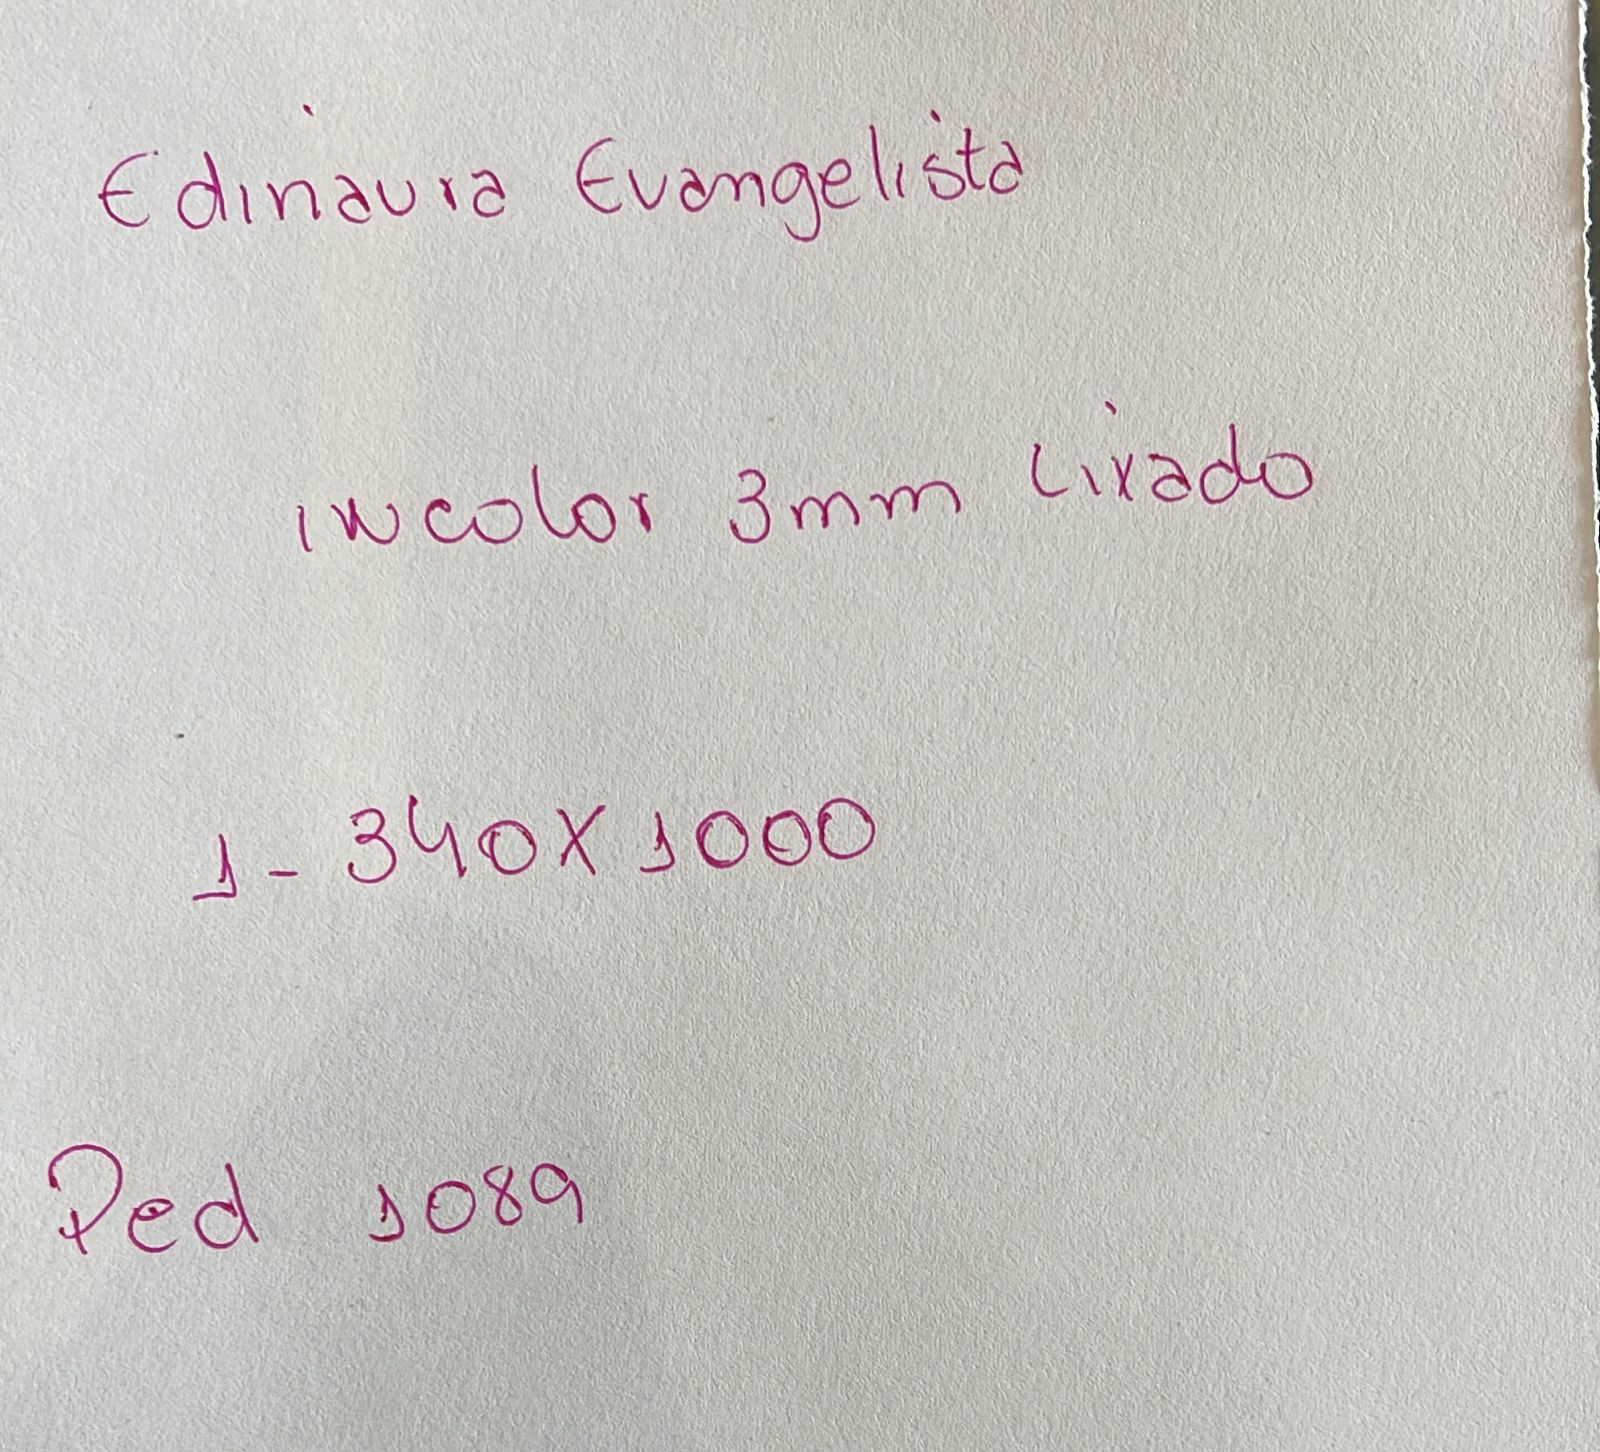 Edinaura Evangelista
incolor 3mm Lixado
1- 340X1000
Ped 1089